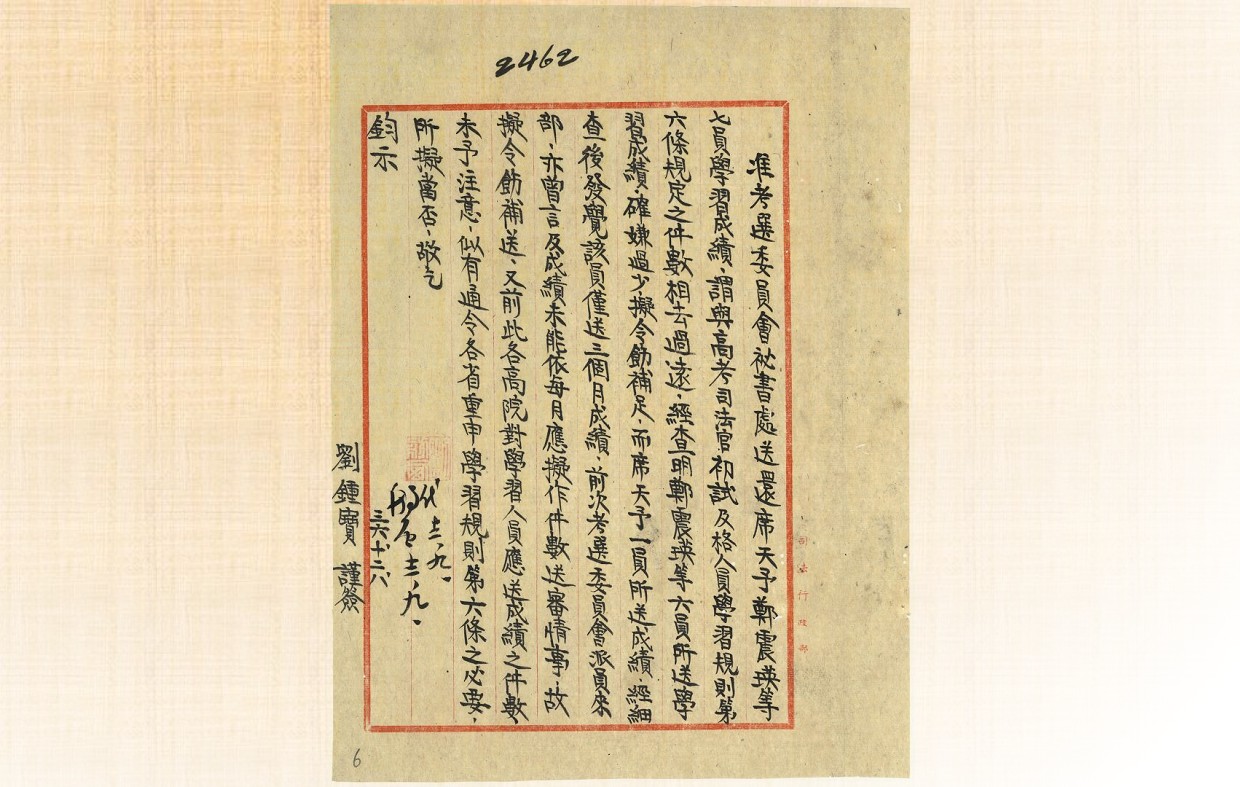 2462
准考選委員會祕書處送還席天予鄭震瑛等
七員學習成績，謂與高考司法官初試及格人員學習規則第
六條規定之件數相去過遠，經查明鄭震瑛等六員所送學
習成績，確嫌過少，擬令飭補足，而席天予一員所送成績，經細
查後發覺該員僅送三個月成績，前次考選委員會派員來
部，亦曾言及成績未能依每月應擬作件數送審情事，故
擬令飭補送，又前此各高院對學習人員應送成績之件數，
未予注意，似有通令各省重申學習規則第六條之必要，
所擬當否，敬乞
鈞示
劉鍾寶 謹簽
三六、十二、八、
十二、九、
十二、九、
司法行政部
6